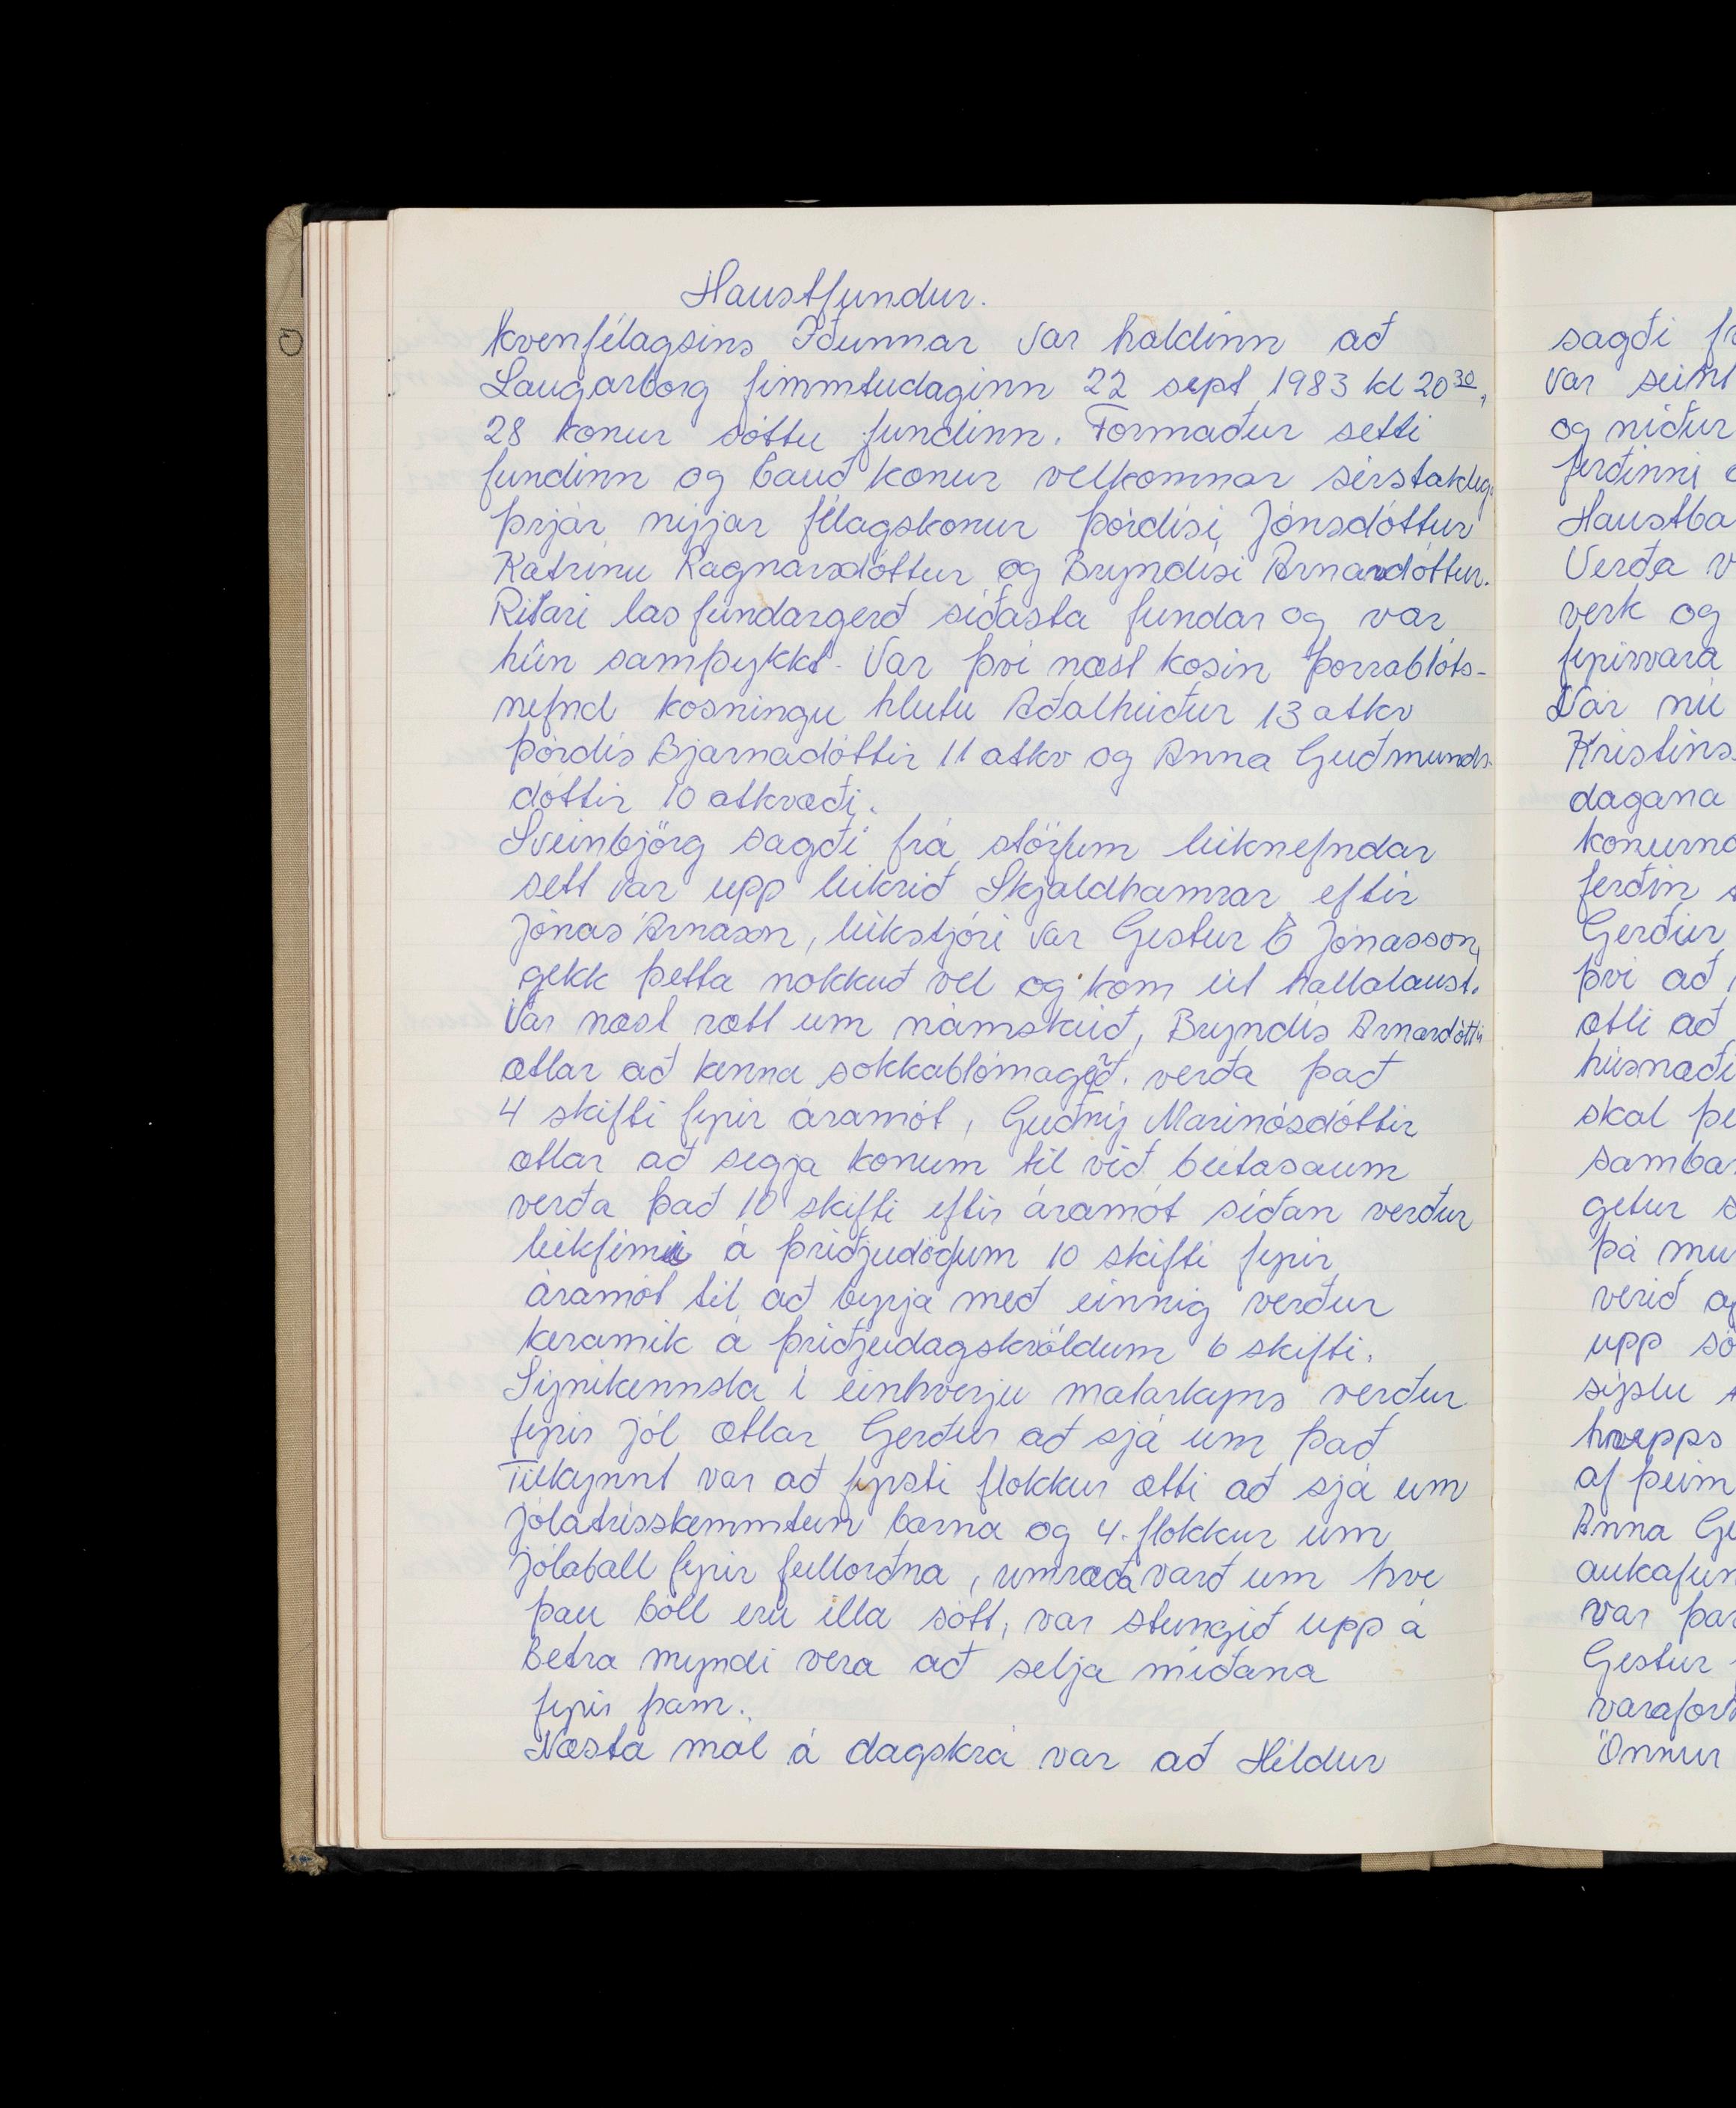 Haustfundur.
kvenfélagsins Iðunnar var haldinn að
Laugarborg fimmtudaginn 22 sept 1983 kl 20 30,
28 konur sóttu fundinn. Formaður setti
fundinn og bauð konur velkomnar sérstakleg.
þrjár nýjar félagskonur Þórdísi Jónsdóttur
Katrínu Ragnarsdóttur og Bryndísi Arnardóttur.
Ritari las fundargerð síðasta fundar og var
hún samþykkt. Var því næst kosin Þorrablóts-
nefnd kosningu hlutu Aðalheiður 13 atkv
Þórdís Bjarnadóttir 11 atkv og Anna Guðmunds
dóttir 10 atkvæði.
Sveinbjörg sagði frá störfum leiknefndar
sett var upp leikrið Skjaldhamrar eftir
Jónas Árnason, leikstjóri var Gestur E Jónasson,
gekk þetta nokkuð vel og kom út hallalaust.
Var næst rætt um námskeið, Bryndís Arnardóttir
ætlar að kenna sokkablómagerð. verða það
4 skifti fyrir áramót, Guðný Marinósdóttir
ætlar að segja konum til við bútasaum
verða það 10 skifti eftir áramót síðan verður
leikfimi á þriðjudögum 10 skifti fyrir
áramót til að byrja með einnig verður
keramik á þriðjudagskvöldum 6 skifti.
Sýnikennsla í einhverju matarkyns verður
fyrir jól ætlar Gerður að sjá um það
Tilkynnt var að fyrsti flokkur ætti að sjá um
Jólatrésskemmtun barna og 4. flokkur um
jólaball fyrir fullorðna, umræða varð um hve
þau böll eru illa sótt, var stungið upp á
Betra myndi vera að selja miðana
fyrir fram.
Næsta mál á dagskrá var að Hildur
sagði
var
og niður
ferðinni
Verða
verk og
fyrirvara
Var nú
dagana
ferðin
Gerður
því að
ætli að
skal
getur
þá
verið
upp
sýslu
hrepps
af þeim
Anna
var
Gestur
Önnur